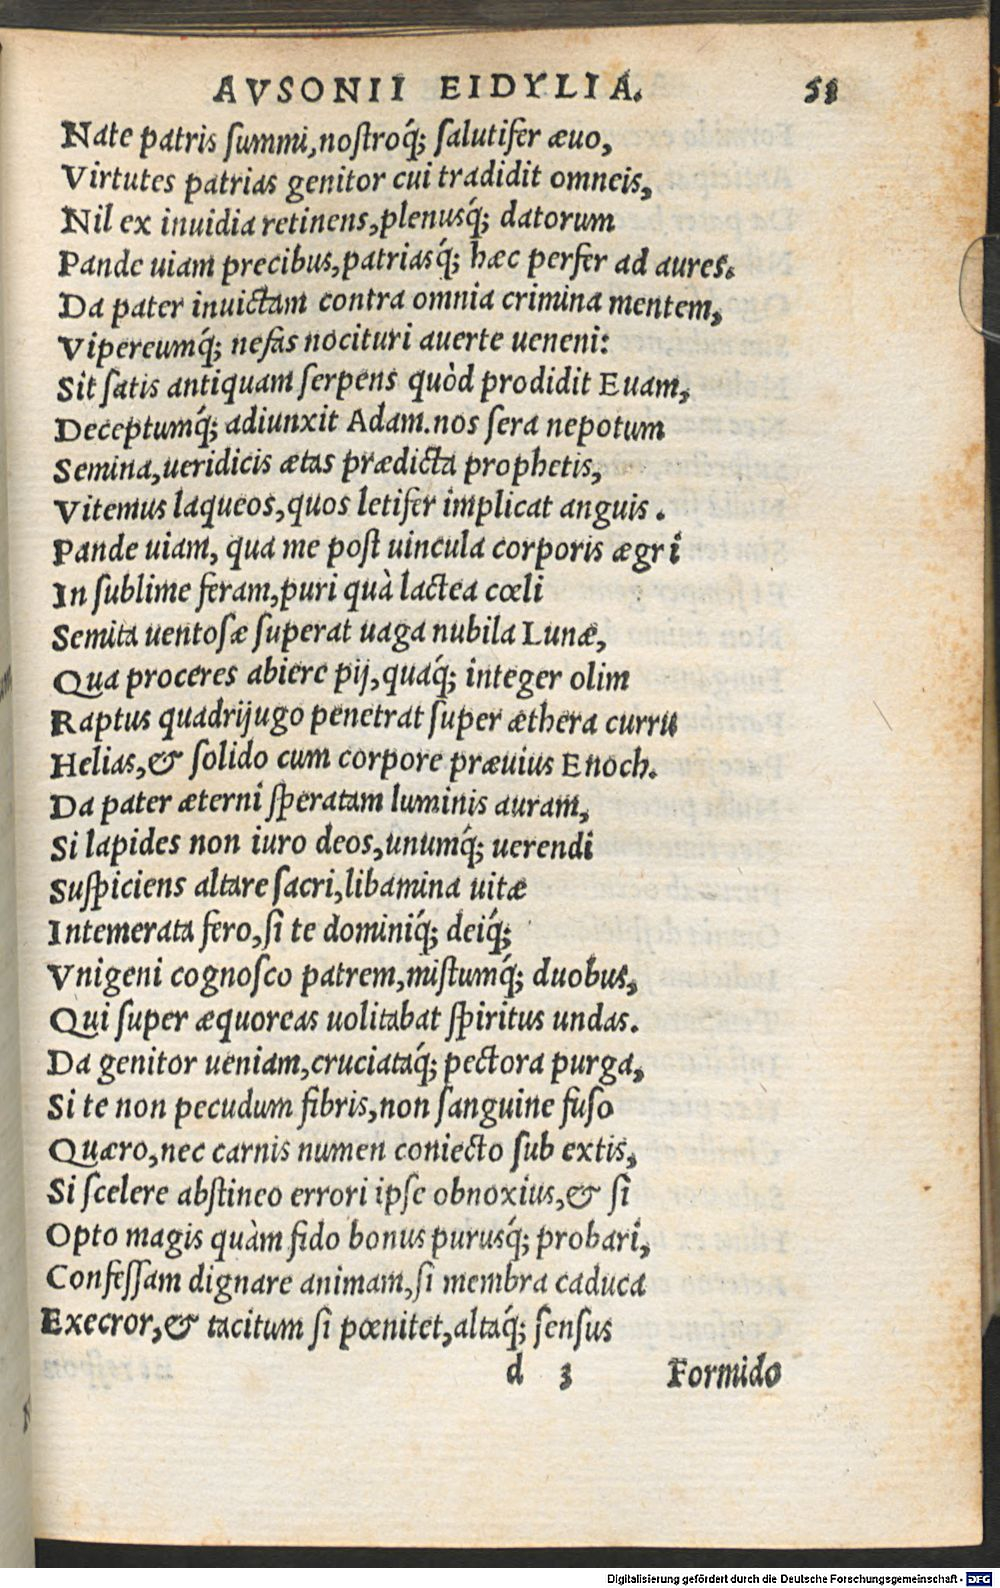 AVSONII EIDYLIA. 53
Nate patris ſummi, noſtroq́; ſalutifer æuo,
Virtutes patrias genitor cui tradidit omneis,
Nil ex inuidia retinens, plenusq́; datorum
Pande uiam precibus, patriasq́; hæc perfer ad aures.
Da pater inuictam contra omnia crimina mentem,
Vipereumq́; nefas nocituri auerte ueneni:
Sit ſatis antiquam ſerpens quòd prodidit Euam,
Deceptumq́; adiunxit Adam. nos ſera nepotum
Semina, ueridicis ætas prædicta prophetis,
Vitemus laqueos, quos letifer implicat anguis.
Pande uiam, qua me poſt uincula corporis ægri
In ſublime feram, puri quà lactea cœli
Semita uentoſæ ſuperat uaga nubila Lunæ,
Qua proceres abiere pij, quaq́; integer olim
Raptus quadrijugo penetrat ſuper æthera curru
Helias, & ſolido cum corpore præuius Enoch.
Da pater æterni ſperatam luminis auram,
Si lapides non iuro deos, unumq́; uerendi
Suſpiciens altare ſacri, libamina uitæ
Intemerata fero, ſi te dominiq́; deiq́;
Vnigeni cognoſco patrem, miſtumq́; duobus,
Qui ſuper æquoreas uolitabat ſpiritus undas.
Da genitor ueniam, cruciataq́; pectora purga,
Si te non pecudum fibris, non ſanguine fuſo
Quæro, nec carnis numen coniecto ſub extis,
Si ſcelere abſtineo errori ipſe obnoxius, & ſi
Opto magis quàm fido bonus purusq́; probari,
Confeſſam dignare animam, ſi membra caduca
Execror, & tacitum ſi pœnitet, altaq́; ſenſus
d 3 Formido
Digitalisierung gefördert durch die Deutsche Forschungsgemeinschaft - DFG